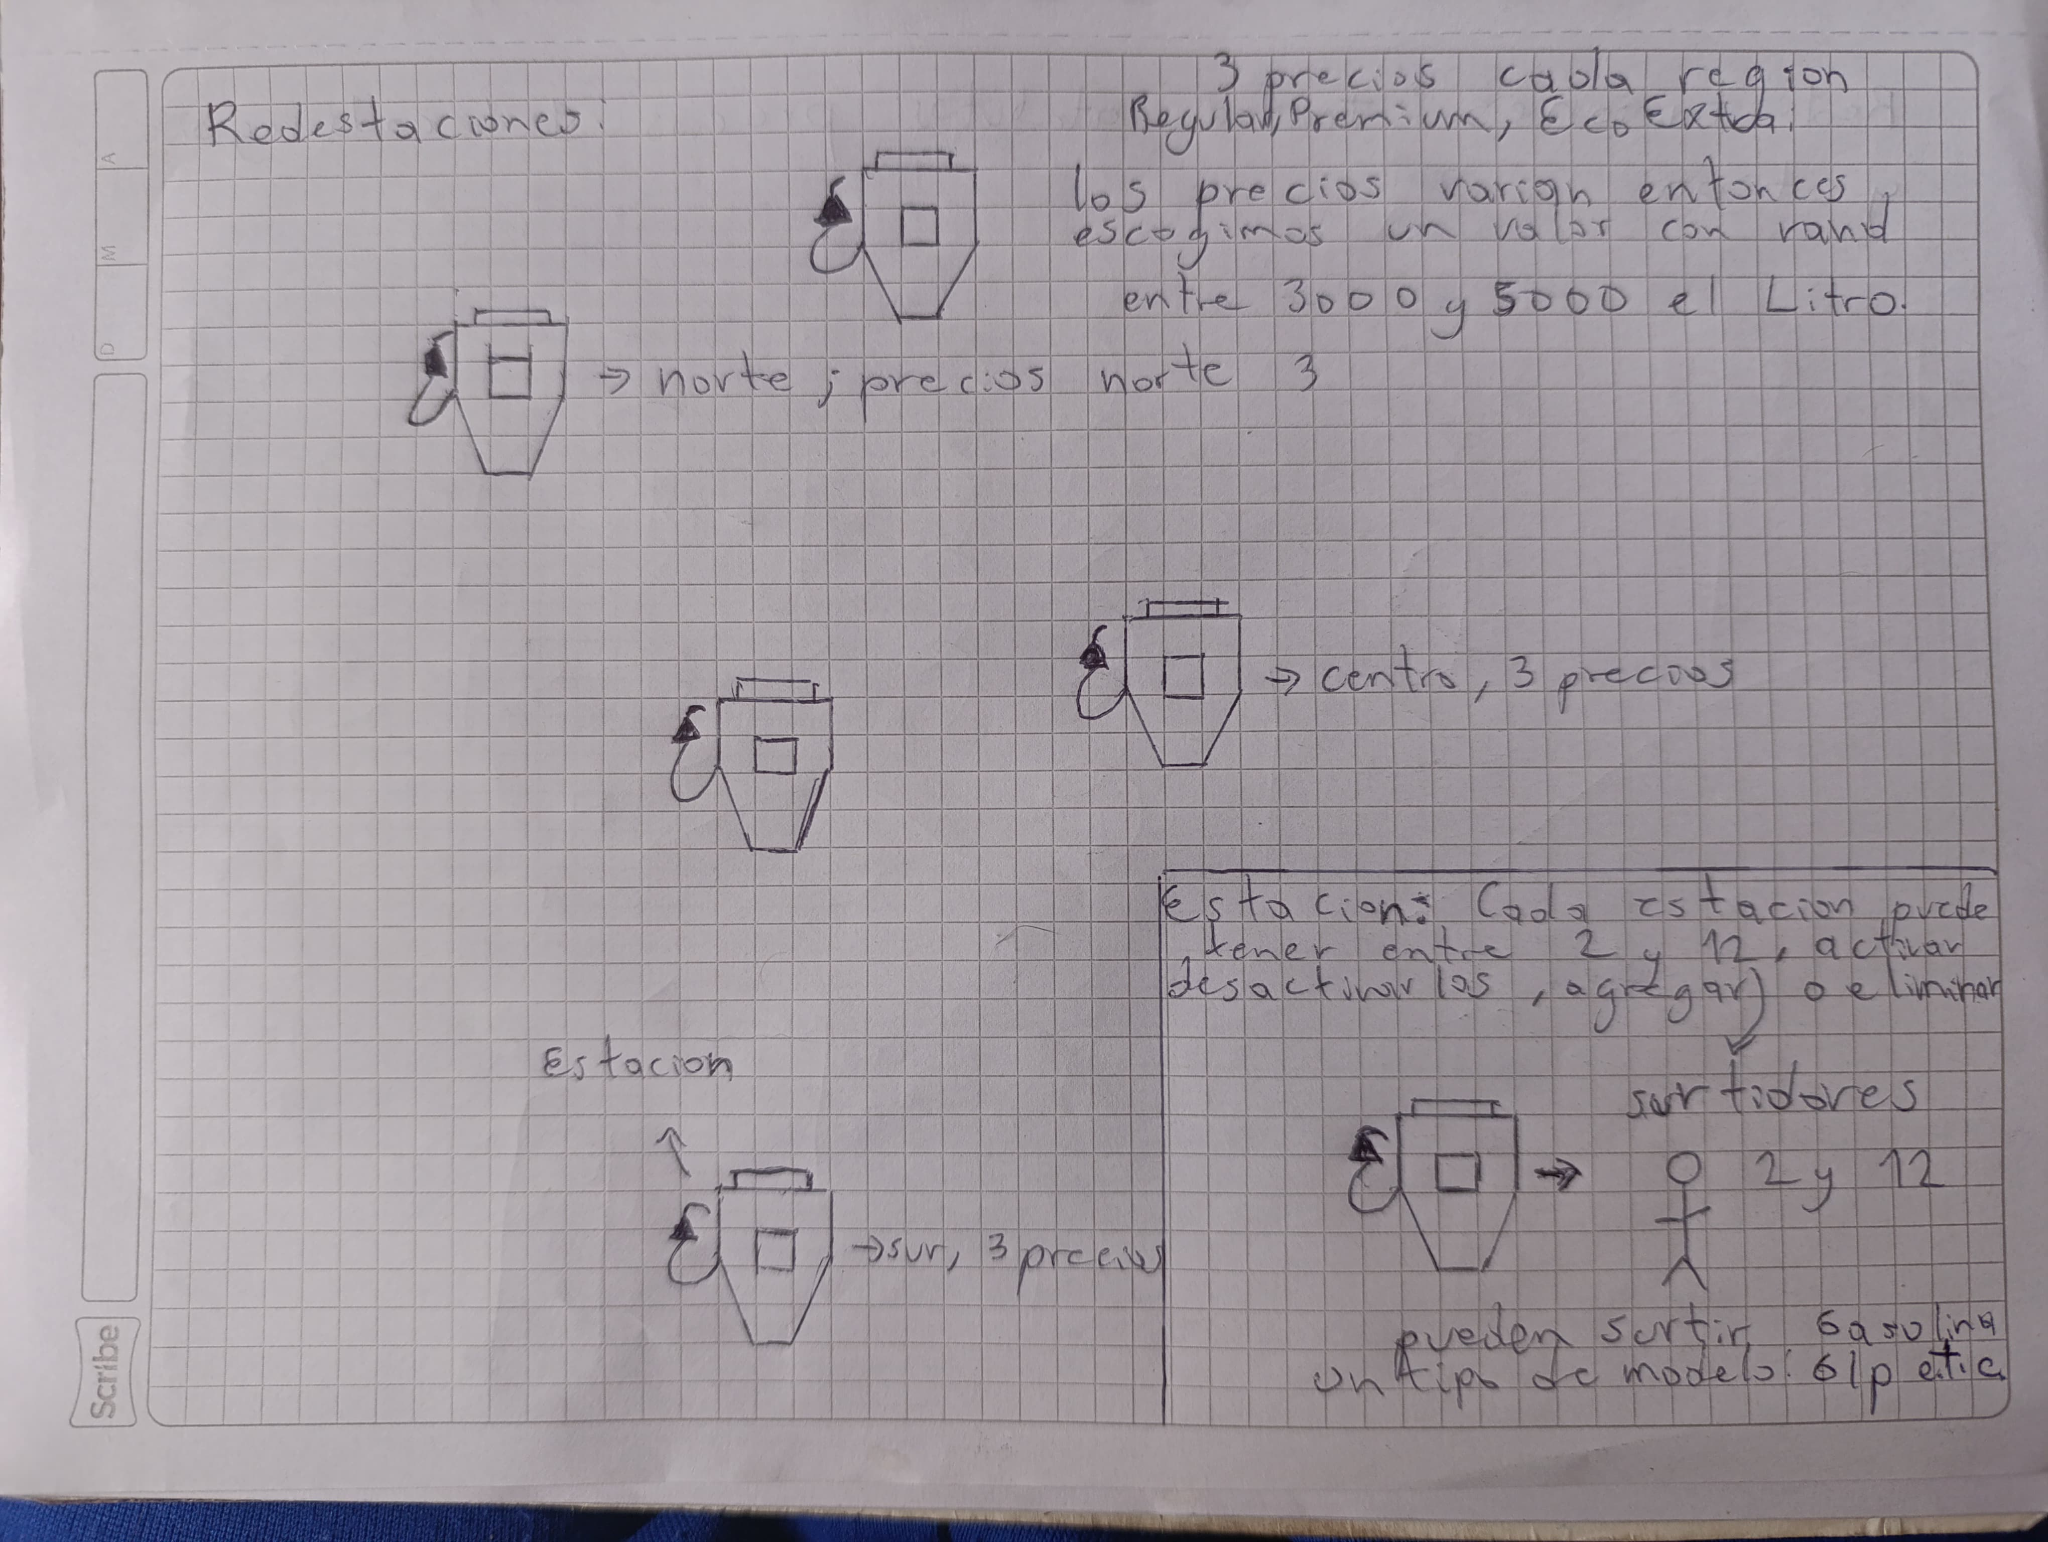 Redestaciones:
3 precios cada region
Regular, Premium, EcoExtra.
los precios varian entonces
escogimos un valor con rand
entre 3000 y 5000 el Litro.
→ norte ; precios norte 3
→ centro, 3 precios
Estacion: Cada estacion puede
tener entre 2 y 12, activar
desactivarlos, agregar) o eliminar
surtidores
2 y 12
pueden surtir Gasolina
un tipo de modelo:
Estacion
→ sur, 3 precios
D M A
Scribe